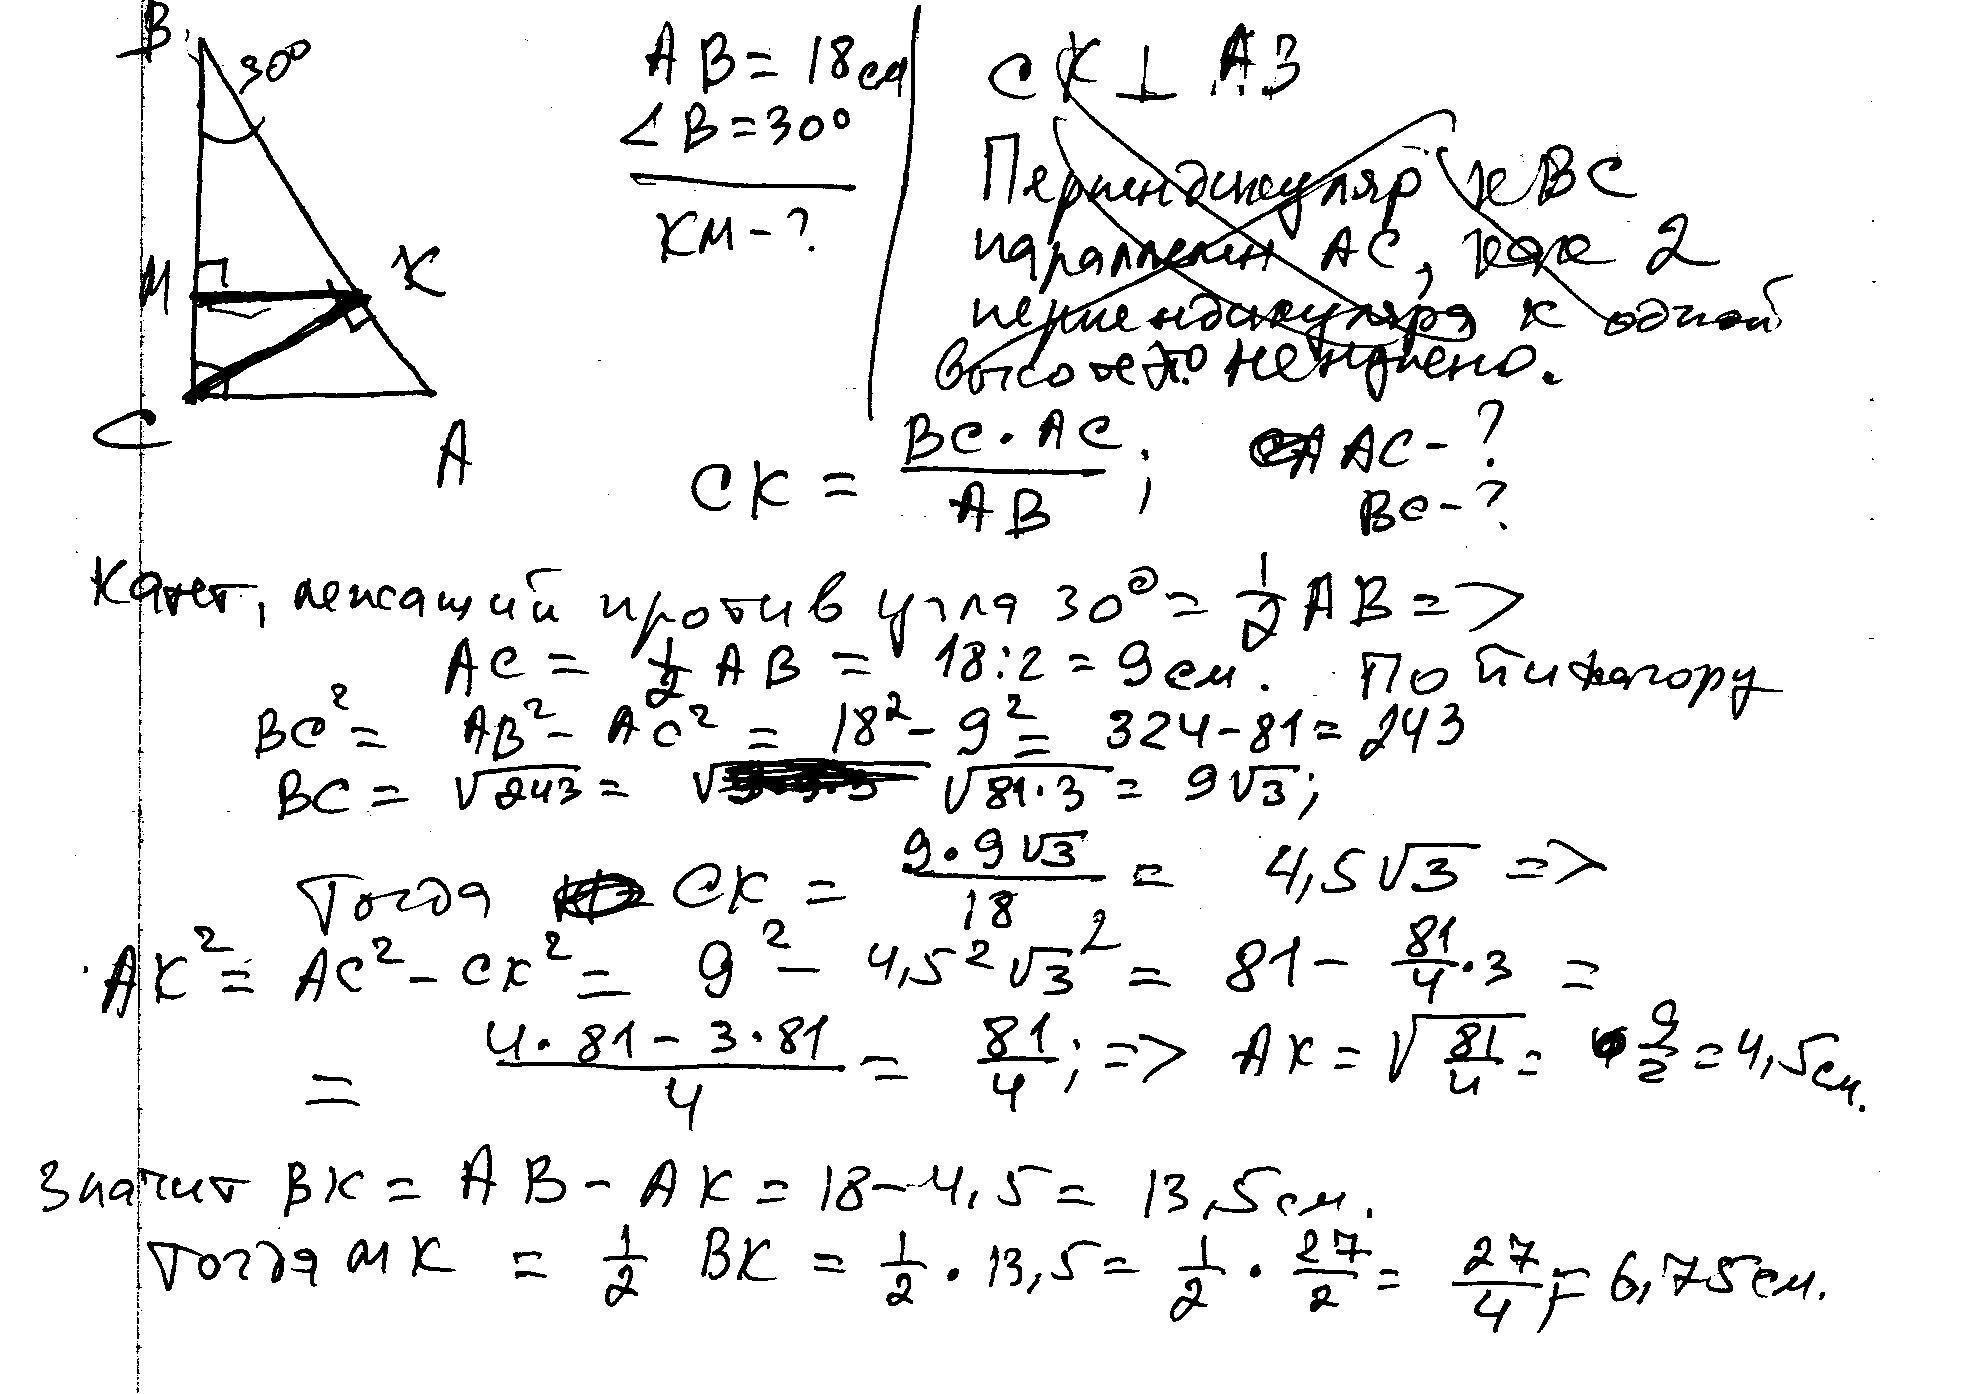 B
30°
M
K
C
A
AB = 18 см
∠B = 30°
KM - ?
CK ⊥ AB
Перпендикуляр к BC
параллелен AC, как 2
перпендикуляра к одной
высоте не нужено.
CK = BC · AC / AB ; AC - ?
BC - ?
Катет, лежащий против угла 30° = 1/2 AB =>
AC = 1/2 AB = 18 : 2 = 9 см. По пифагору
BC² = AB² - AC² = 18² - 9² = 324 - 81 = 243
BC = √243 = √81·3 = 9√3;
Тогда CK = 9·9√3 / 18 = 4,5√3 =>
AK² = AC² - CK² = 9² - 4,5²√3² = 81 - 81/4 · 3 =
= 4·81 - 3·81 / 4 = 81/4; => AK = √81/4 = 9/2 = 4,5 см.
Значит BK = AB - AK = 18 - 4,5 = 13,5 см.
Тогда MK = 1/2 BK = 1/2 · 13,5 = 1/2 · 27/2 = 27/4 = 6,75 см.